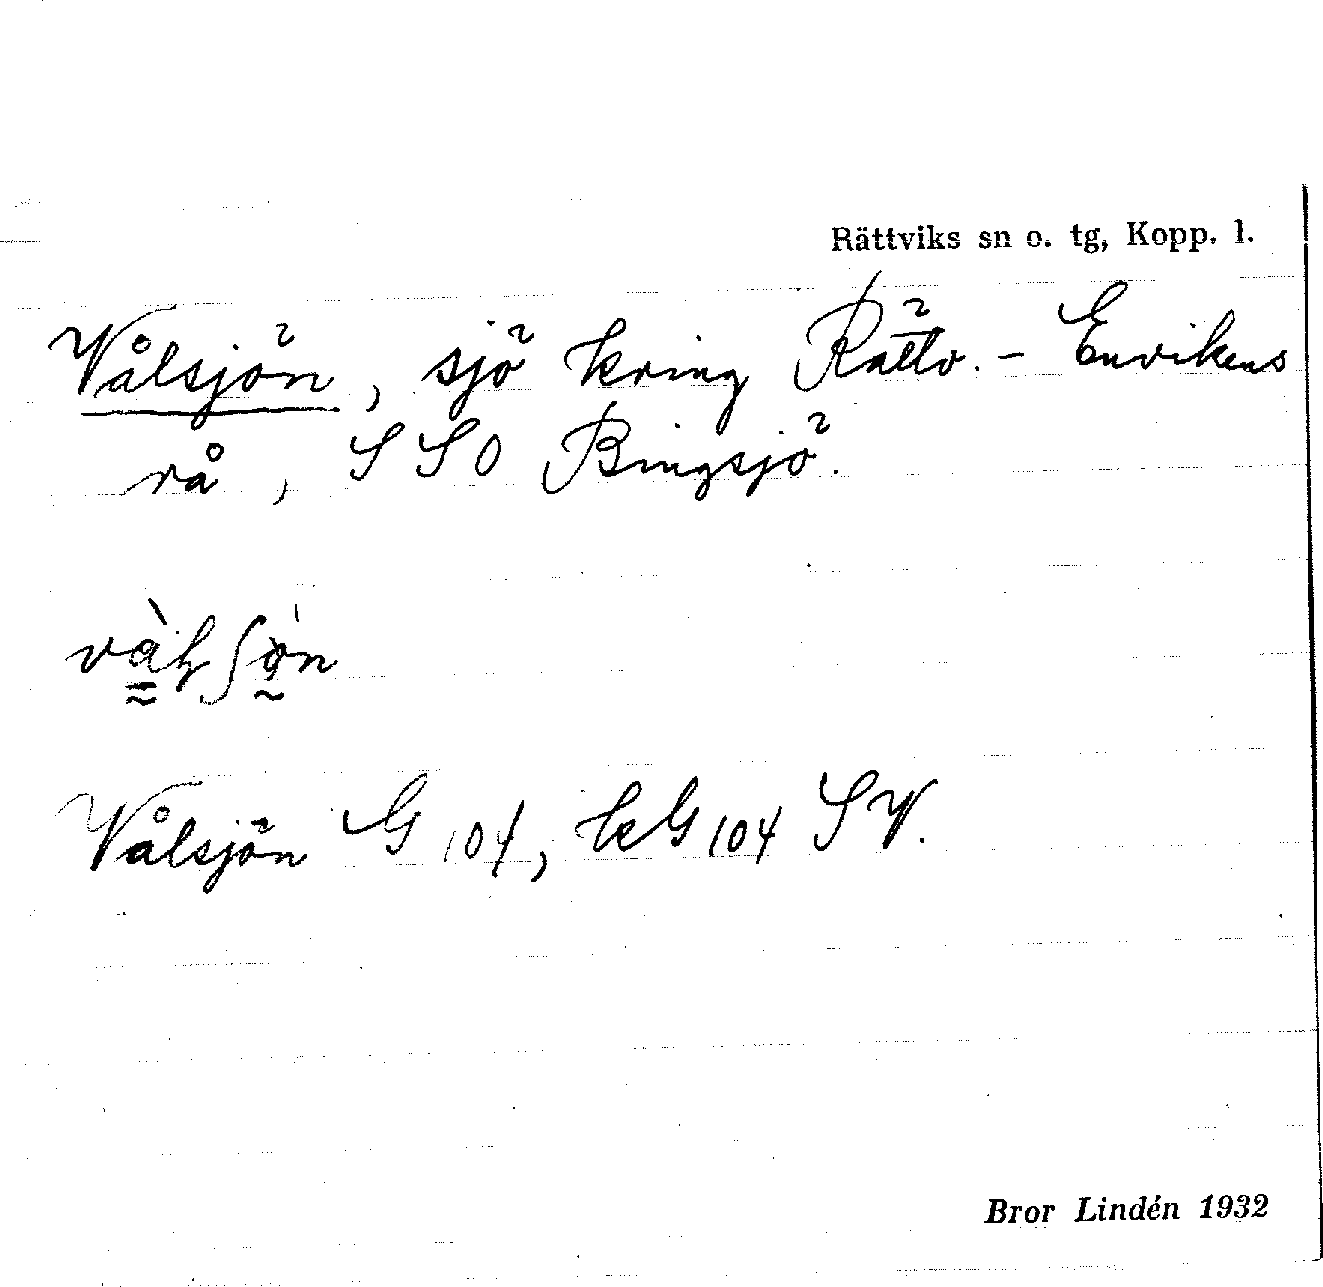 Rättviks sn o. tg, Kopp. l.
Vålsjön, sjö kring Rättv. - Envikens
rå, SSO Bingsjö.
Vålsjön G 104, kG 104 SV.
Bror Lindén 1932